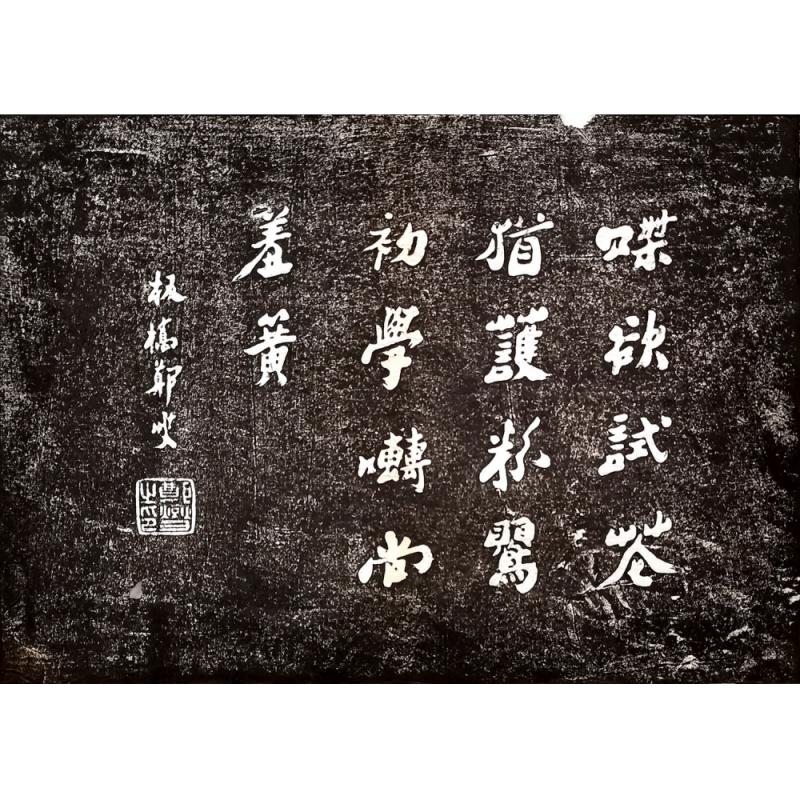 蝶欲試花
猶護粉鶯
初學囀尚
羞簧
板橋鄭燮
鄭燮之印